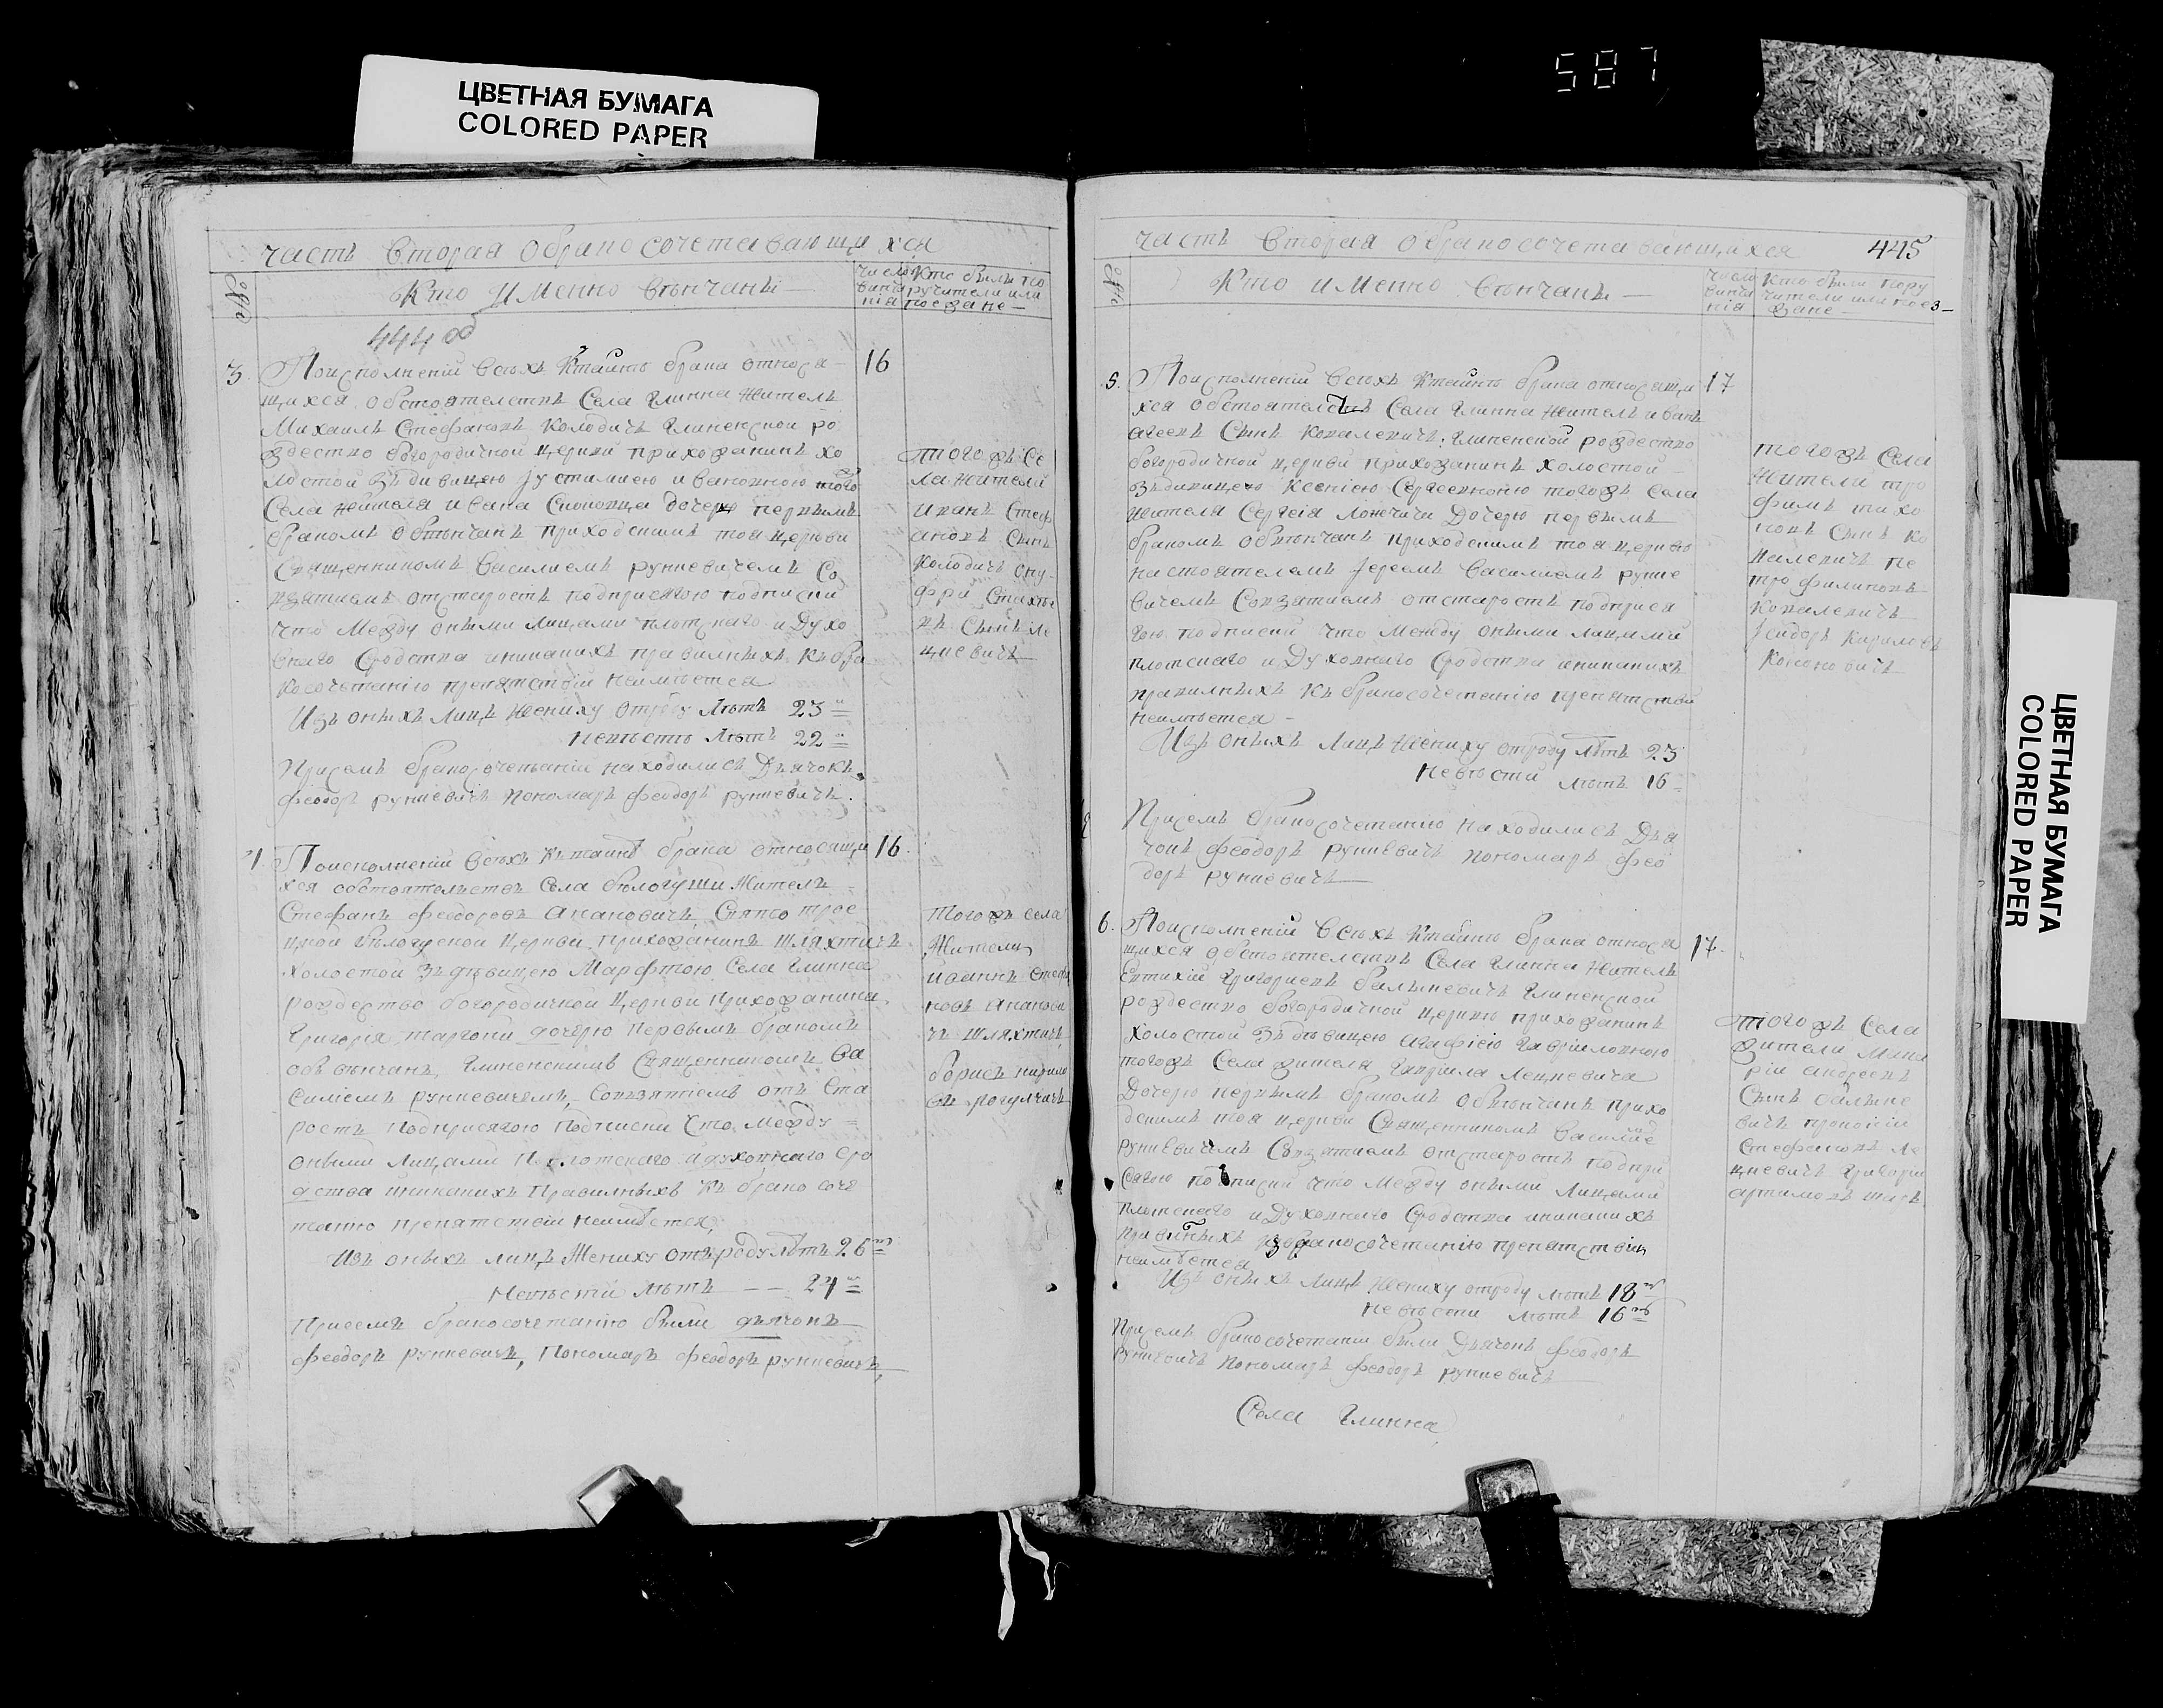 ЦВЕТНАЯ БУМАГА
COLORED PAPER
587
часть Вторая обракосочетавающихся
№
Кто Именно вѣнчаны
число венчанія
Кто были поручители или поезжане
444 об
3. Поисполненіи всѣхъ Ктаинѣ брака относя 16
щихся обстоятелствъ Села Глинна житель
Михаилъ Стефановъ Колодичъ Глиненской ро
ждество богородичной церкви прихожанинъ хо
лостой зъ дивицею Іустиниею Ивановною того
Села жителя Ивана дочерю первымъ
бракомъ обвѣнчанъ приходскимъ тоя церкви
Священникомъ Василиемъ рункевичемъ Со
взятиемъ отстаростъ подприсягою подписки
что между оными Лицами плотскаго и Духо
внаго Сродства иникакихъ правилныхъ къ бра
косочетанію препятствій неимѣется
Изъ оныхъ Лицъ Жениху отроду лѣтъ 23
Невѣстѣ Лѣтъ 22
Присемъ бракосочетаніи находились Дьячокъ
феодоръ рункевичъ пономаръ феодоръ рункевичъ.
тогожъ Се
ла жители
иванъ Стеф
ановъ Сынъ
Колодичъ ону
фри
въ Сынъ Ле
цкевичъ
4. Поисполненіи всѣхъ къ таинѣ брака относящи 16.
хся обстоятельствъ Села бѣлогуши Жителъ
Стефанъ феодоровъ Анановичъ Свято трое
цкой бѣлогуской Церкви прихожанинъ шляхтичъ
холостой зъ дѣвицею Марфтою Села Глинна
рождество богородичкой Церкви прихожанина
Григорія дочерю первымъ бракомъ
обѣ вѣнчанъ, Глиненскимъ Священникомъ Ва
силіемъ рункевичемъ, Совзятіемъ отъ Ста
ростъ подприсягою подписки Что между
оными Лицами плотскаго идуховнаго сро
дства иникакихъ Правилныхъ къ брако соче
танию препятствій неимѣется,
Изъ оныхъ лицъ Жениху отъ роду лѣтъ 26
Невѣсти лѣтъ — — 21
Присемъ бракосочетанію были дьячокъ
феодоръ рункевичъ, Пономаръ феодоръ рункевичъ,
тогожъ села
Жители
иоаннъ Стефа
новъ Ананови
чъ шляхтичъ
борисъ кирило
въ рогулчикъ
часть Вторая обракосочетавающихся 445
№
Кто именно вѣнчаны
число венчанія
Кто были поручители или поезжане
5. Поисполненіи всѣхъ Ктаинѣ брака относящи 17
хся обстоятелствъ Села Глинна житель иванъ
агеевъ Сынъ Ковалевичъ, Глиненской рождество
богородичной церкви прихожанинъ холостой
зъ дивицею Ксениею Сергеевною тогожъ Села
жителя Сергѣя Лонечичи Дочерю первымъ
бракомъ обвѣнчанъ приходскимъ тоя церкви
настоятелемъ Іереемъ Василиемъ рунке
вичемъ Совзятиемъ отстаростъ подприся
гою подписки что между оными лицами
плотскаго и Духовнаго Сродства иникакихъ
правилныхъ къ бракосочетанію препятствій
неимѣется
Изъ оныхъ Лицъ Жениху отроду лѣтъ 23
Невѣсти лѣтъ 16
Присемъ бракосочетанию находились Дья
чокъ феодоръ рункевичъ пономаръ фео
доръ рункевичъ
тогожъ Села
жители тро
фимъ тихо
новъ Сынъ Ко
валевичъ пе
тро филиповъ
Ковалевичъ
Ісидоръ Кириловъ
Кононовичъ
6. Поисполненіи всѣхъ Ктаинѣ брака относя 17.
щихся обстоятелствъ Села Глинна житель
Евтихій Григориевъ балыкевичъ Глиненской
рождество богородичной церкви прихожанинъ
холостой зъ дѣвицею агафією Гавриловною
тогожъ Села жителя Гавріила Лецкевича
Дочерю первымъ бракомъ обвѣнчанъ прихо
дскимъ тоя церкви Священникомъ Василие
рункевичемъ Совзятиемъ отстаростъ подпри
сягою подписки что между оными Лицами
плотскаго и Духовнаго Сродства иникакихъ
бракосочетанію препятствій
неимѣется
Изъ оныхъ Лицъ Жениху отроду лѣтъ 18
Невѣсти лѣтъ 16
Присемъ бракосочетаніи были Дьячокъ феодоръ
рункевичъ пономаръ феодоръ рункевичъ
тогожъ Села
жители Мака
рій андреевъ
Сынъ балыке
вичъ прокопій
Стефановъ Ле
цкевичъ Григорій
артимовъ
Села Глинна
ЦВЕТНАЯ БУМАГА
COLORED PAPER